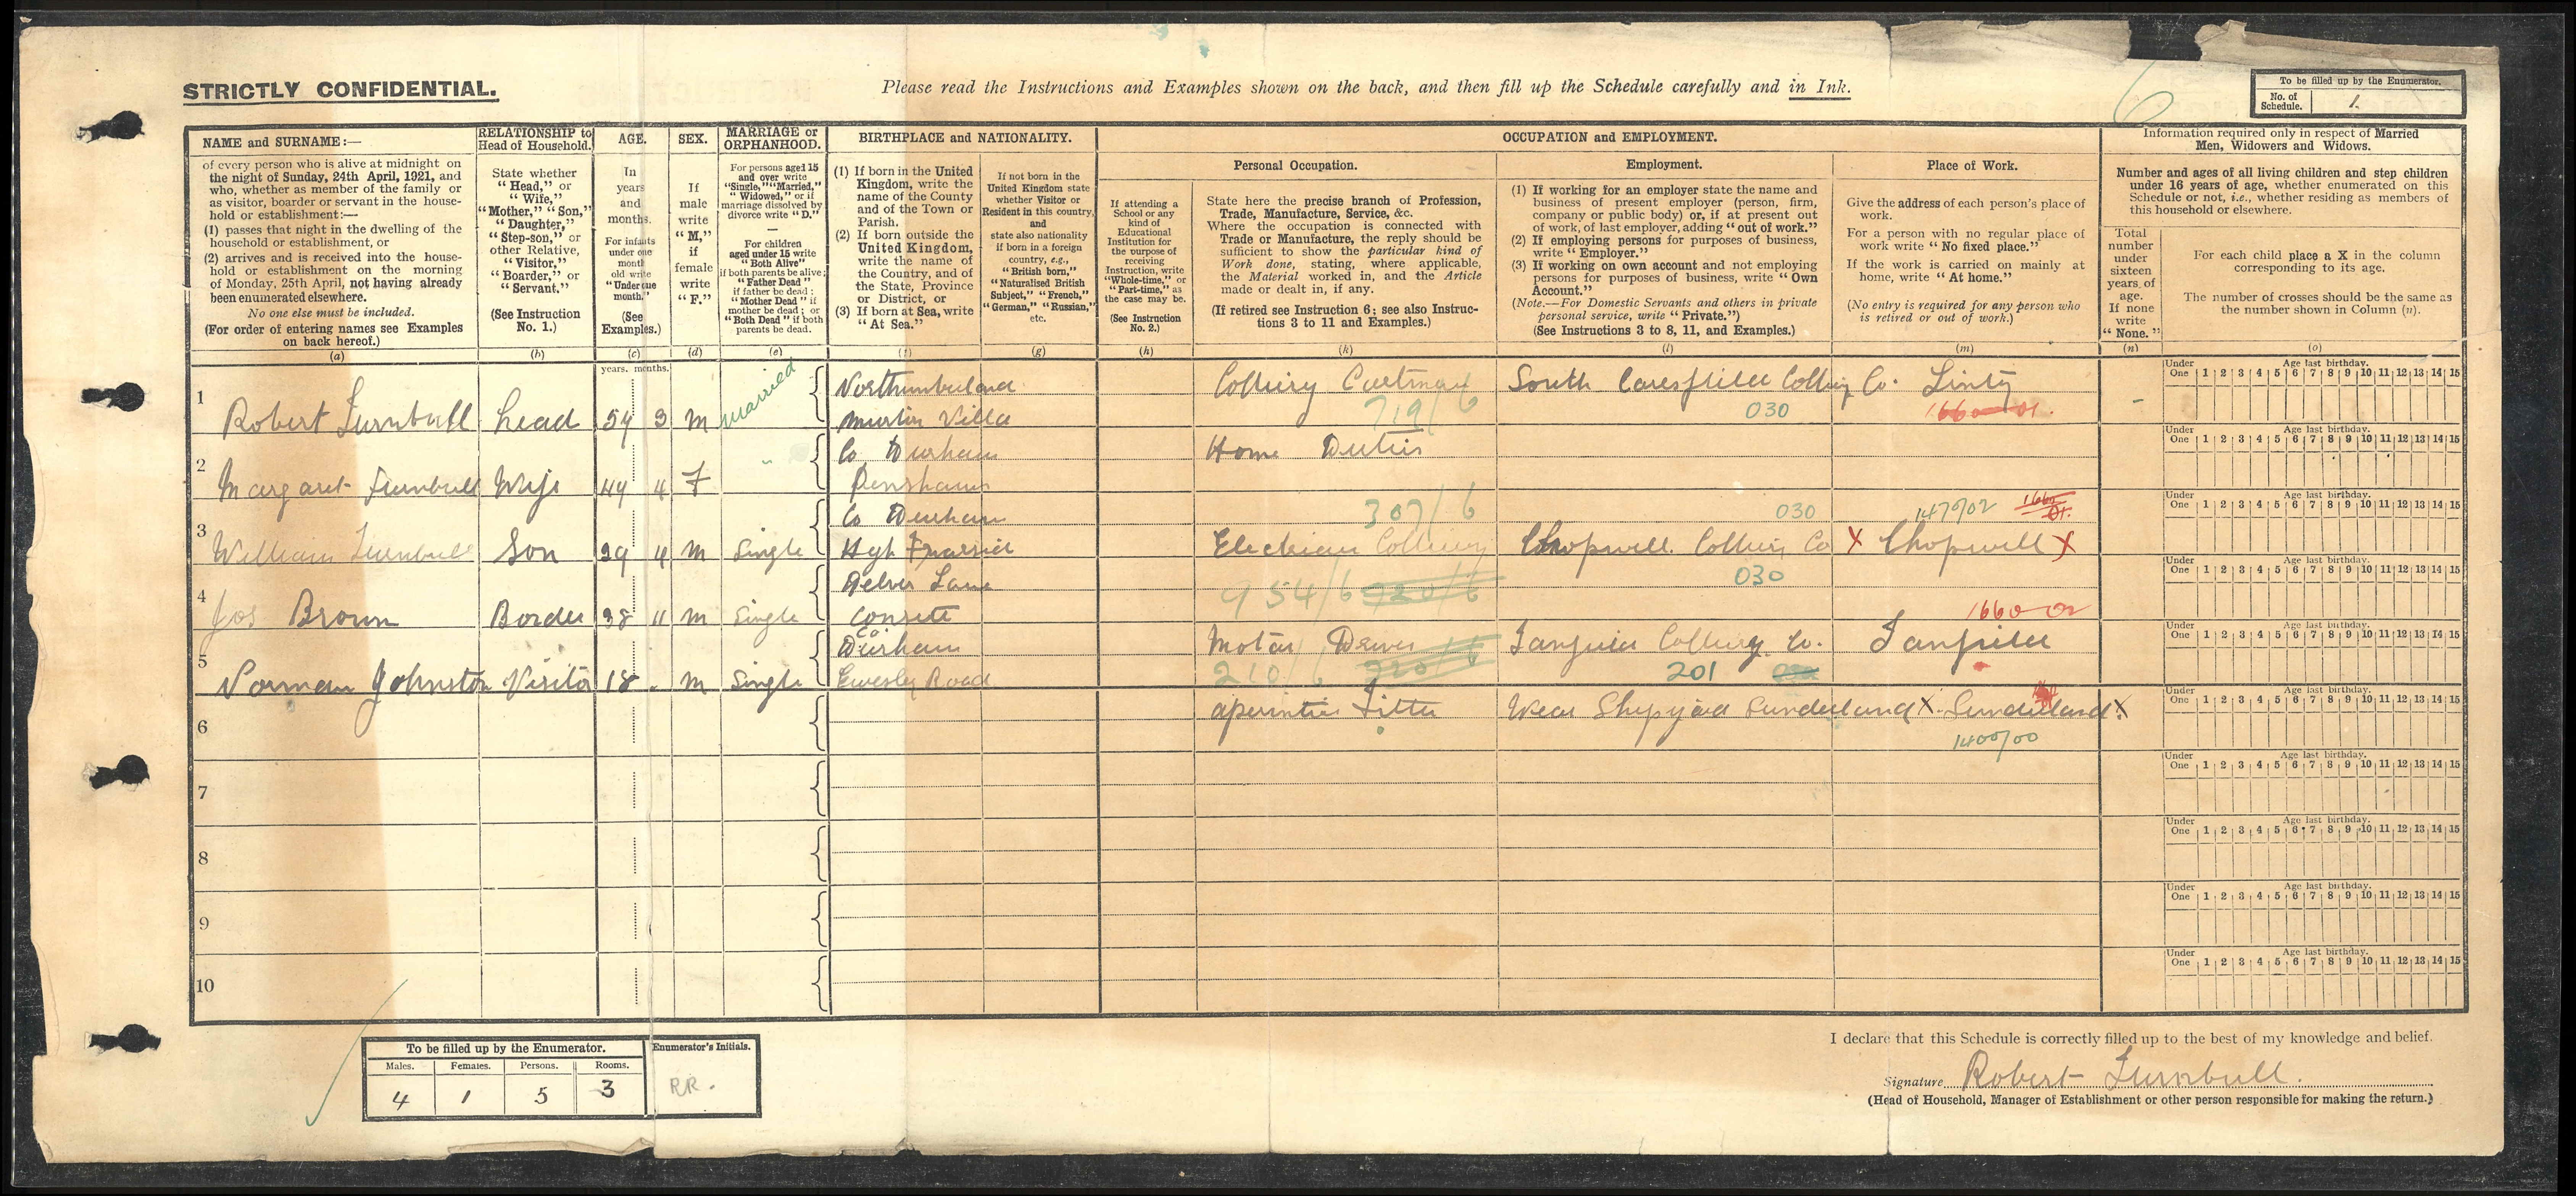 STRICTLY CONFIDENTIAL.
Please read the Instructions and Examples shown on the back, and then fill up the Schedule carefully and in Ink.
6
To be filled up by the Enumerator.
No. of Schedule. 1.
NAME and SURNAME:—
of every person who is alive at midnight on
the night of Sunday, 24th April, 1921, and
who, whether as member of the family or
as visitor, boarder or servant in the house-
hold or establishment:—
(1) passes that night in the dwelling of the
household or establishment, or
(2) arrives and is received into the house-
hold or establishment on the morning
of Monday, 25th April, not having already
been enumerated elsewhere.
No one else must be included.
(For order of entering names see Examples
on back hereof.)
(a)
RELATIONSHIP to
Head of Household.
State whether
"Head," or
"Wife,"
"Mother," "Son,"
"Daughter,"
"Step-son," or
other Relative,
"Visitor,"
"Boarder," or
"Servant."
(See Instruction
No. 1.)
(b)
AGE.
In
years
and
months.
For infants
under one
month
old write
"Under one
month."
(See
Examples.)
(c)
SEX.
If
male
write
"M,"
if
female
write
"F."
(d)
MARRIAGE or
ORPHANHOOD.
For persons aged 15
and over write
"Single," "Married,"
"Widowed," or if
marriage dissolved by
divorce write "D."
For children
aged under 15 write
"Both Alive"
if both parents be alive;
"Father Dead"
if father be dead;
"Mother Dead" if
mother be dead; or
"Both Dead" if both
parents be dead.
(e)
BIRTHPLACE and NATIONALITY.
(1) If born in the United
Kingdom, write the
name of the County
and of the Town or
Parish.
(2) If born outside the
United Kingdom,
write the name of
the Country, and of
the State, Province
or District, or
(3) If born at Sea, write
"At Sea."
(f)
If not born in the
United Kingdom state
whether Visitor or
Resident in this country,
and
state also nationality
if born in a foreign
country, e.g.,
"British born,"
"Naturalised British
Subject," "French,"
"German," "Russian,"
etc.
(g)
OCCUPATION and EMPLOYMENT.
If attending a
School or any
kind of
Educational
Institution for
the purpose of
receiving
Instruction, write
"Whole-time," or
"Part-time," as
the case may be.
(See Instruction
No. 2.)
(h)
Personal Occupation.
State here the precise branch of Profession,
Trade, Manufacture, Service, &c.
Where the occupation is connected with
Trade or Manufacture, the reply should be
sufficient to show the particular kind of
Work done, stating, where applicable,
the Material worked in, and the Article
made or dealt in, if any.
(If retired see Instruction 6; see also Instruc-
tions 3 to 11 and Examples.)
(k)
Employment.
(1) If working for an employer state the name and
business of present employer (person, firm,
company or public body) or, if at present out
of work, of last employer, adding "out of work."
(2) If employing persons for purposes of business,
write "Employer."
(3) If working on own account and not employing
persons for purposes of business, write "Own
Account."
(Note.—For Domestic Servants and others in private
personal service, write "Private.")
(See Instructions 3 to 8, 11, and Examples.)
(l)
Place of Work.
Give the address of each person's place of
work.
For a person with no regular place of
work write "No fixed place."
If the work is carried on mainly at
home, write "At home."
(No entry is required for any person who
is retired or out of work.)
(m)
Information required only in respect of Married
Men, Widowers and Widows.
Number and ages of all living children and step children
under 16 years of age, whether enumerated on this
Schedule or not, i.e., whether residing as members of
this household or elsewhere.
Total
number
under
sixteen
years of
age.
If none
write
"None."
(n)
For each child place a X in the column
corresponding to its age.
The number of crosses should be the same as
the number shown in Column (n).
(o)
years. months.
1 Robert Turnbull head 54 3 M Married Northumberland Colliery South Colliery Co. Lintz -
719/6 030 1660 01.
2 Margaret Turnbull Wife 44 4 F " Co Durham Penshaw Home Duties
3 William Turnbull Son 29 4 M Single Co Durham Electrian Colliery Chopwell Colliery Co X Chopwell X
307/6 030 1470/02 1660 01.
4 Jos Brown Border 38 11 M Single Delves Lane Consett
954/6 930/6 030 1660 02
Motor Tanfield Colliery Co. Tanfield
5 Norman Johnston Visitor 18 - M Single Co. Durham Ewesley Road
210/6 201
6 Fitter Wear Shipyard Sunderland X Sunderland X
1400/00
7
8
9
10
Under One 1 2 3 4 5 6 7 8 9 10 11 12 13 14 15
Age last birthday.
Under One 1 2 3 4 5 6 7 8 9 10 11 12 13 14 15
Age last birthday.
Under One 1 2 3 4 5 6 7 8 9 10 11 12 13 14 15
Age last birthday.
Under One 1 2 3 4 5 6 7 8 9 10 11 12 13 14 15
Age last birthday.
Under One 1 2 3 4 5 6 7 8 9 10 11 12 13 14 15
Age last birthday.
Under One 1 2 3 4 5 6 7 8 9 10 11 12 13 14 15
Age last birthday.
Under One 1 2 3 4 5 6 7 8 9 10 11 12 13 14 15
Age last birthday.
Under One 1 2 3 4 5 6 7 8 9 10 11 12 13 14 15
Age last birthday.
Under One 1 2 3 4 5 6 7 8 9 10 11 12 13 14 15
Age last birthday.
Under One 1 2 3 4 5 6 7 8 9 10 11 12 13 14 15
Age last birthday.
To be filled up by the Enumerator.
Males. Females. Persons. Rooms.
4 1 5 3
Enumerator's Initials.
RR.
I declare that this Schedule is correctly filled up to the best of my knowledge and belief.
Signature Robert Turnbull.
(Head of Household, Manager of Establishment or other person responsible for making the return.)